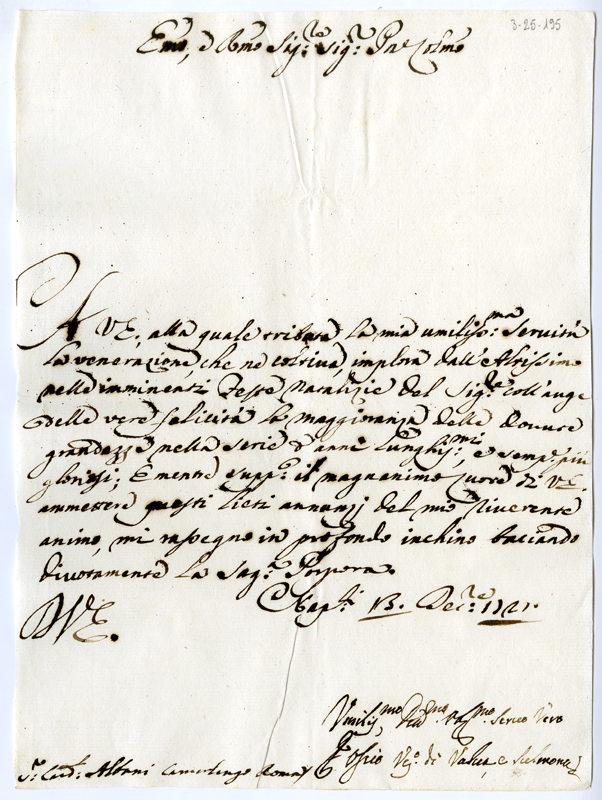 3-26-195
Em̃o, e Rm̃o Sig.re Sig.r P̃ne Colmo
A V.E., alla quale tributa la mia umiliss:ma servitù
la venerazione, che ne coltiva, implora dall'Altissimo
nelle imminenti Feste Natalizie del Sig.re coll'auge
delle vere felicità la maggioranza delle dovute
grandezze nella serie d'anni lunghiss:mi, e sempre più
gloriosi; E mentre supp.co il magnanimo cuore di V.E.
ammettere questi lieti annunzj del mio riverente
animo, mi rassegno in profondo inchino baciando
divotamente la Sag.ra Porpora.
Nap.li 13. Dec.re 1721.
D V.E.
Umiliss.mo Dev.mo Servo Vero
Vs.o di Valva, e Sulmona
S.r Card.l Albani Camerlengo Roma